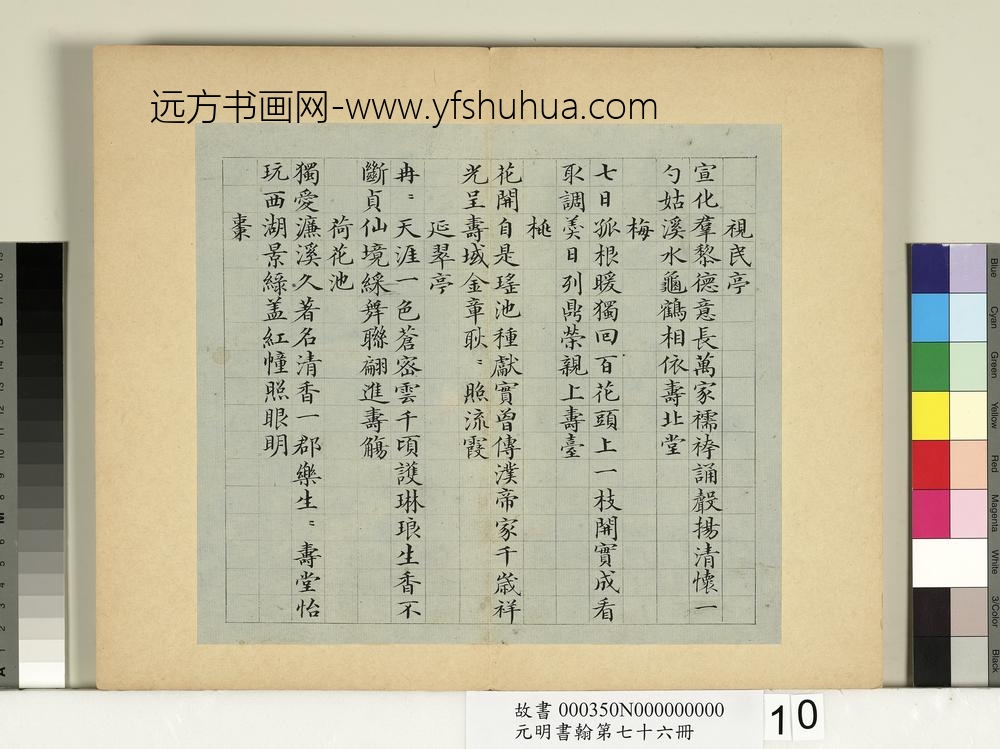 远方书画网-www.yfshuhua.com
視民亭
宣化羣黎德意長萬家襦袴誦聲揚清懷一
勺姑溪水龜鶴相依壽北堂
梅
七日孤根暖獨回百花頭上一枝開實成看
取調羹日列鼎榮親上壽臺
桃
花開自是瑤池種獻實曾傳漢帝家千歲祥
光呈壽域金章耿〻照流霞
延翠亭
冉〻天涯一色蒼密雲千頃護琳琅生香不
斷貞仙境綵舞聯翩進壽觴
荷花池
獨愛濂溪久著名清香一郡樂生〻壽堂怡
玩西湖景綠盖紅幢照眼明
棗
故書 000350N000000000
元明書翰第七十六冊
10
Blue
Cyan
Green
Yellow
Red
Magenta
White
3/Color
Black